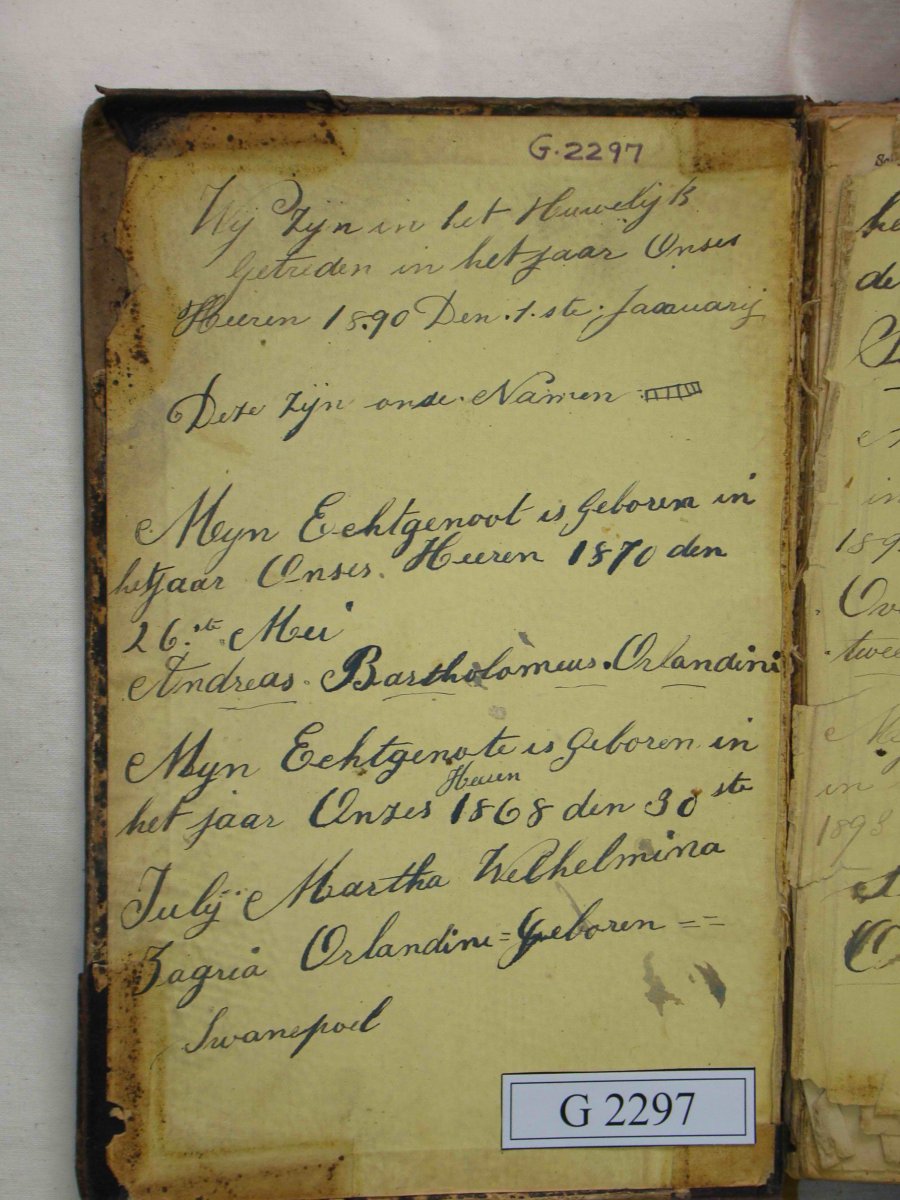 G.2297
Wij zijn in het Huwelijk
Getreden in het jaar Onses
Heeren 1890 Den .1. ste. Jaauarij
Deze zijn onse. Namen
Myn Echtgenoot is Geboren in
het jaar Onses. Heeren 1870 den
26.ste Mei
Andreas. Bartholomeus. Orlandini
Myn Echtgenote is Geboren in
het jaar Onzes Heeren 1868 den 30 ste
Julij Martha Welhelmina
Zagria Orlandini = Geboren ==
Swanepoel
G 2297
he
de
in
189
Ov
twee
in
1893